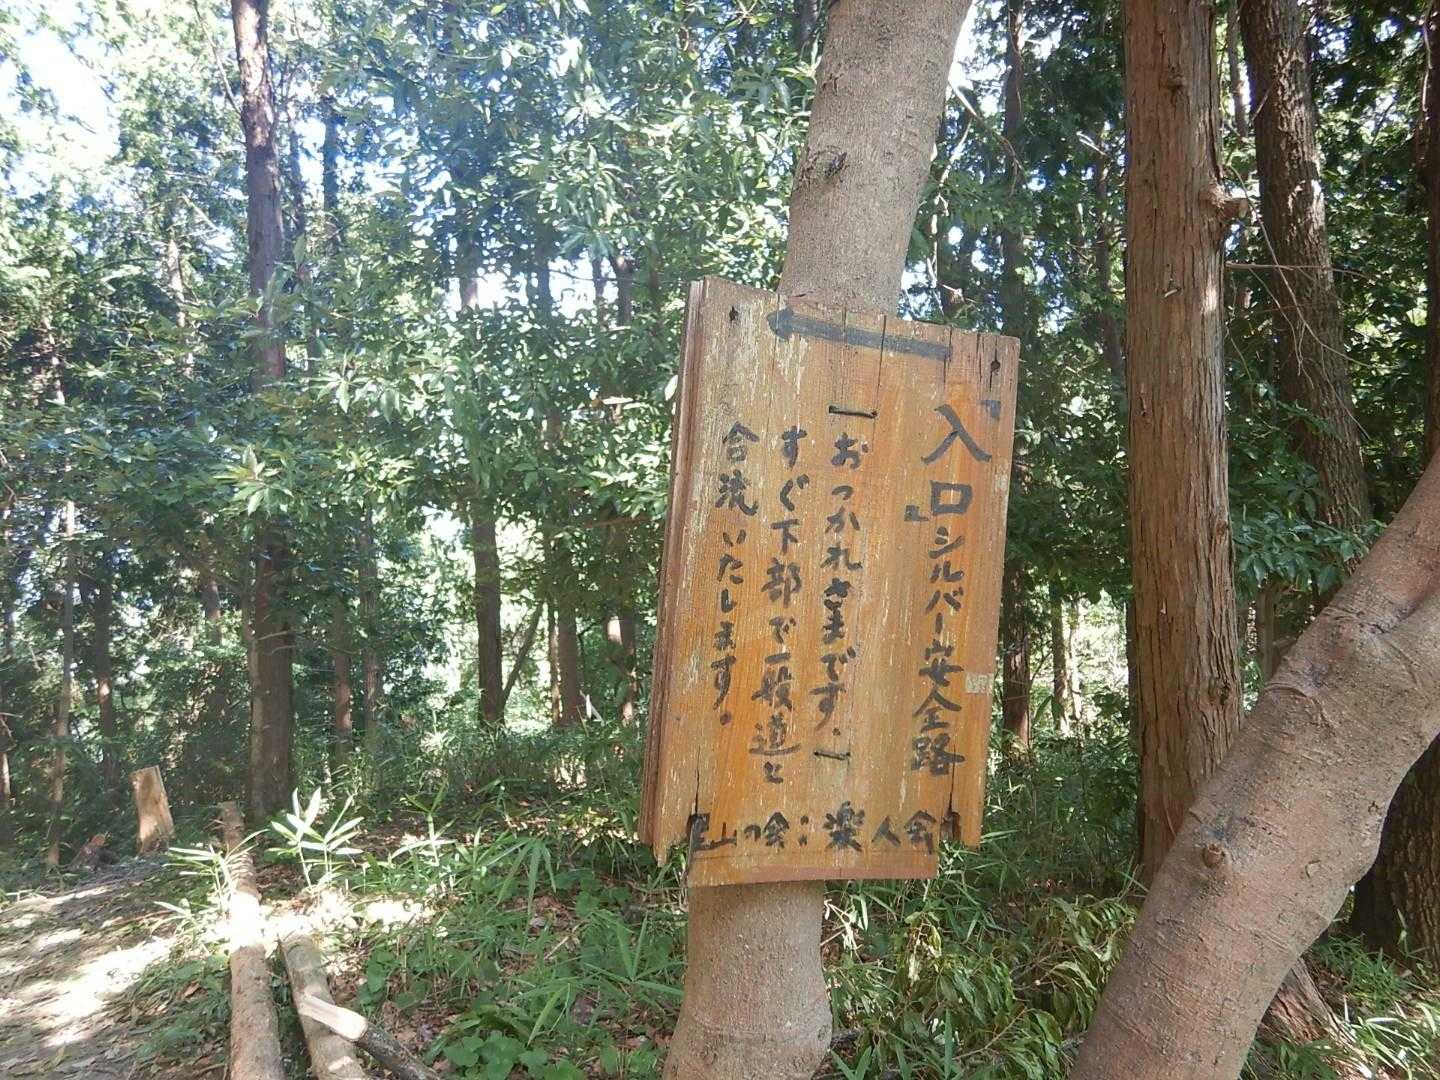 「入口」シルバー安全路
「おつかれさまです。」
すぐ下部で一般道と
合流いたします。
里山の会:楽人会